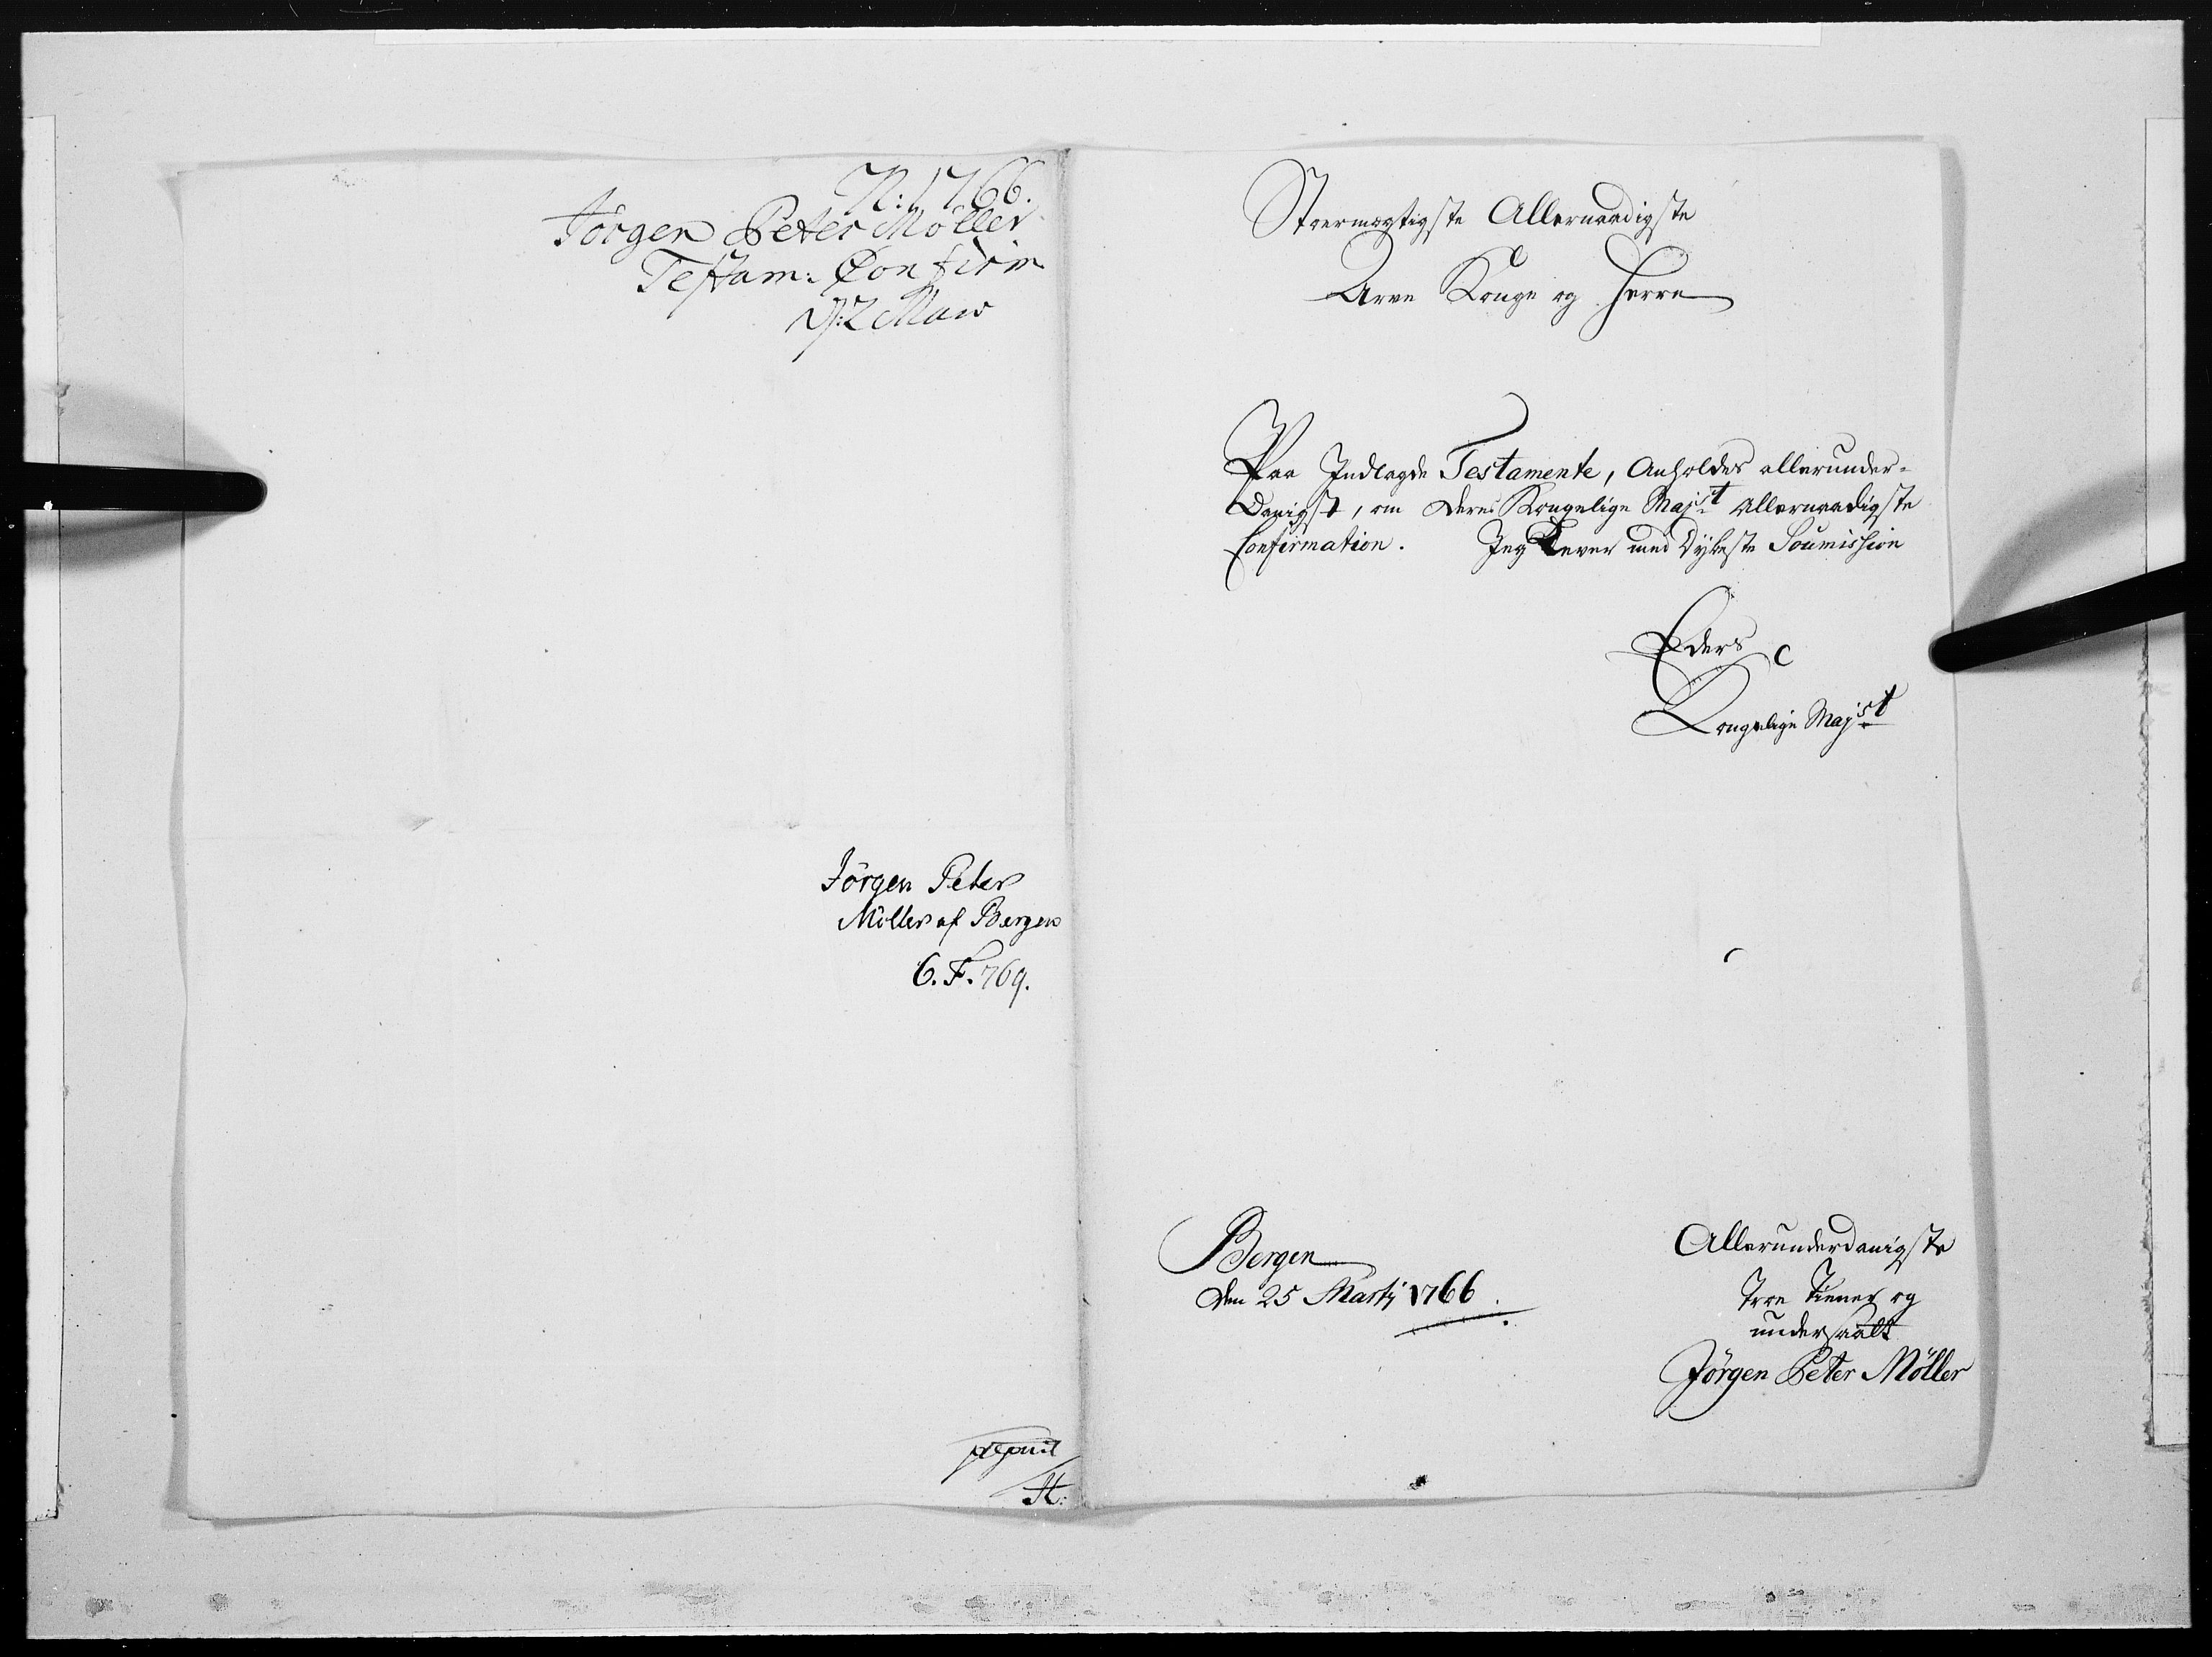 N: 1766.
Jörgen Peter Möller
Testam: Confirm
Jörgen Peter
Möller af Bergen
6. F. 769.
H:
Stoermægtigste Allernaadigste
Arve Konge og Herre
Paa Indlagde Testamente, Anholdes allerunder-
Danigst, om Deres Kongelige Majst Allernaadigste
Confirmation. Jeg Lever med Dybeste Soumission
Eders
Kongelige Majst
Bergen
den 25 Martj 1766.
Allerunderdanigste
Troe Tiener og
undersaatt
Jörgen Peter Möller